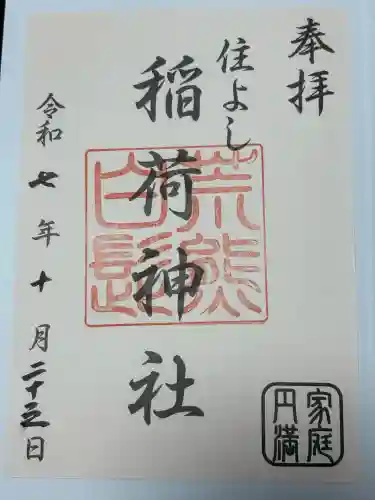 奉拝
住よし
稲荷神社
荒熊
白髭
令和七年十月二十三日
家庭
円満